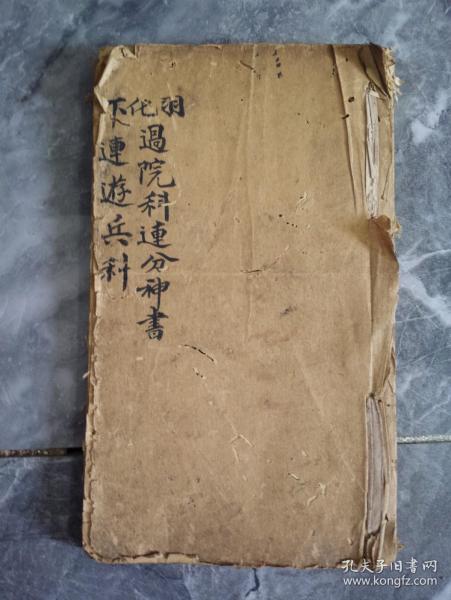 羽化
過院科連分神書
下連遊兵科
孔夫子旧书网
www.kongfz.com